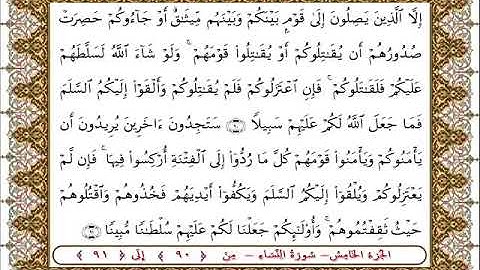 إِلَّا ٱلَّذِينَ يَصِلُونَ إِلَىٰ قَوْمٍۭ بَيْنَكُمْ وَبَيْنَهُم مِّيثَٰقٌ أَوْ جَآءُوكُمْ حَصِرَتْ
صُدُورُهُمْ أَن يُقَٰتِلُوكُمْ أَوْ يُقَٰتِلُوا۟ قَوْمَهُمْ ۚ وَلَوْ شَآءَ ٱللَّهُ لَسَلَّطَهُمْ
عَلَيْكُمْ فَلَقَٰتَلُوكُمْ ۚ فَإِنِ ٱعْتَزَلُوكُمْ فَلَمْ يُقَٰتِلُوكُمْ وَأَلْقَوْا۟ إِلَيْكُمُ ٱلسَّلَمَ
فَمَا جَعَلَ ٱللَّهُ لَكُمْ عَلَيْهِمْ سَبِيلًا ۝٩٠ سَتَجِدُونَ ءَاخَرِينَ يُرِيدُونَ أَن
يَأْمَنُوكُمْ وَيَأْمَنُوا۟ قَوْمَهُمْ كُلَّ مَا رُدُّوٓا۟ إِلَى ٱلْفِتْنَةِ أُرْكِسُوا۟ فِيهَا ۚ فَإِن لَّمْ
يَعْتَزِلُوكُمْ وَيُلْقُوٓا۟ إِلَيْكُمُ ٱلسَّلَمَ وَيَكُفُّوٓا۟ أَيْدِيَهُمْ فَخُذُوهُمْ وَٱقْتُلُوهُمْ
حَيْثُ ثَقِفْتُمُوهُمْ ۚ وَأُو۟لَٰٓئِكُمْ جَعَلْنَا لَكُمْ عَلَيْهِمْ سُلْطَٰنًا مُّبِينًا ۝٩١
الجزء الخامس - سورة النساء - من ﴿ ٩٠ ﴾ إلى ﴿ ٩١ ﴾